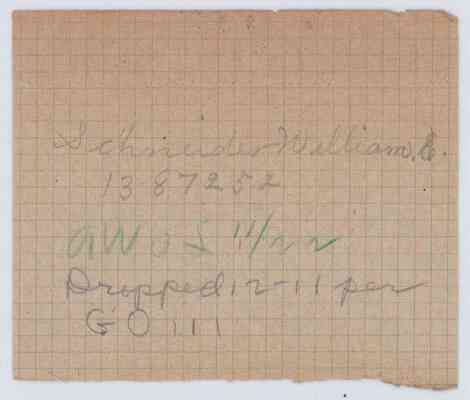 Schneider William. E.
1387252
AWOS 11/22
Dropped 12-11 per
GO 111